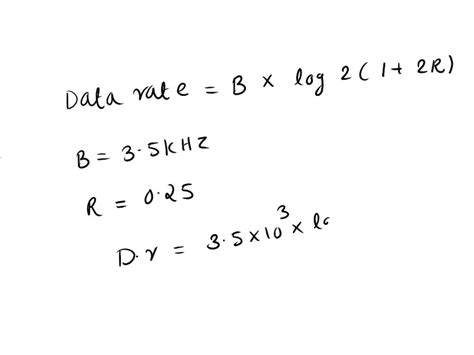 Data rate = B × log 2 ( 1 + 2R)
B = 3.5 kHz
R = 0.25
D.r = 3.5 × 10³ × lo